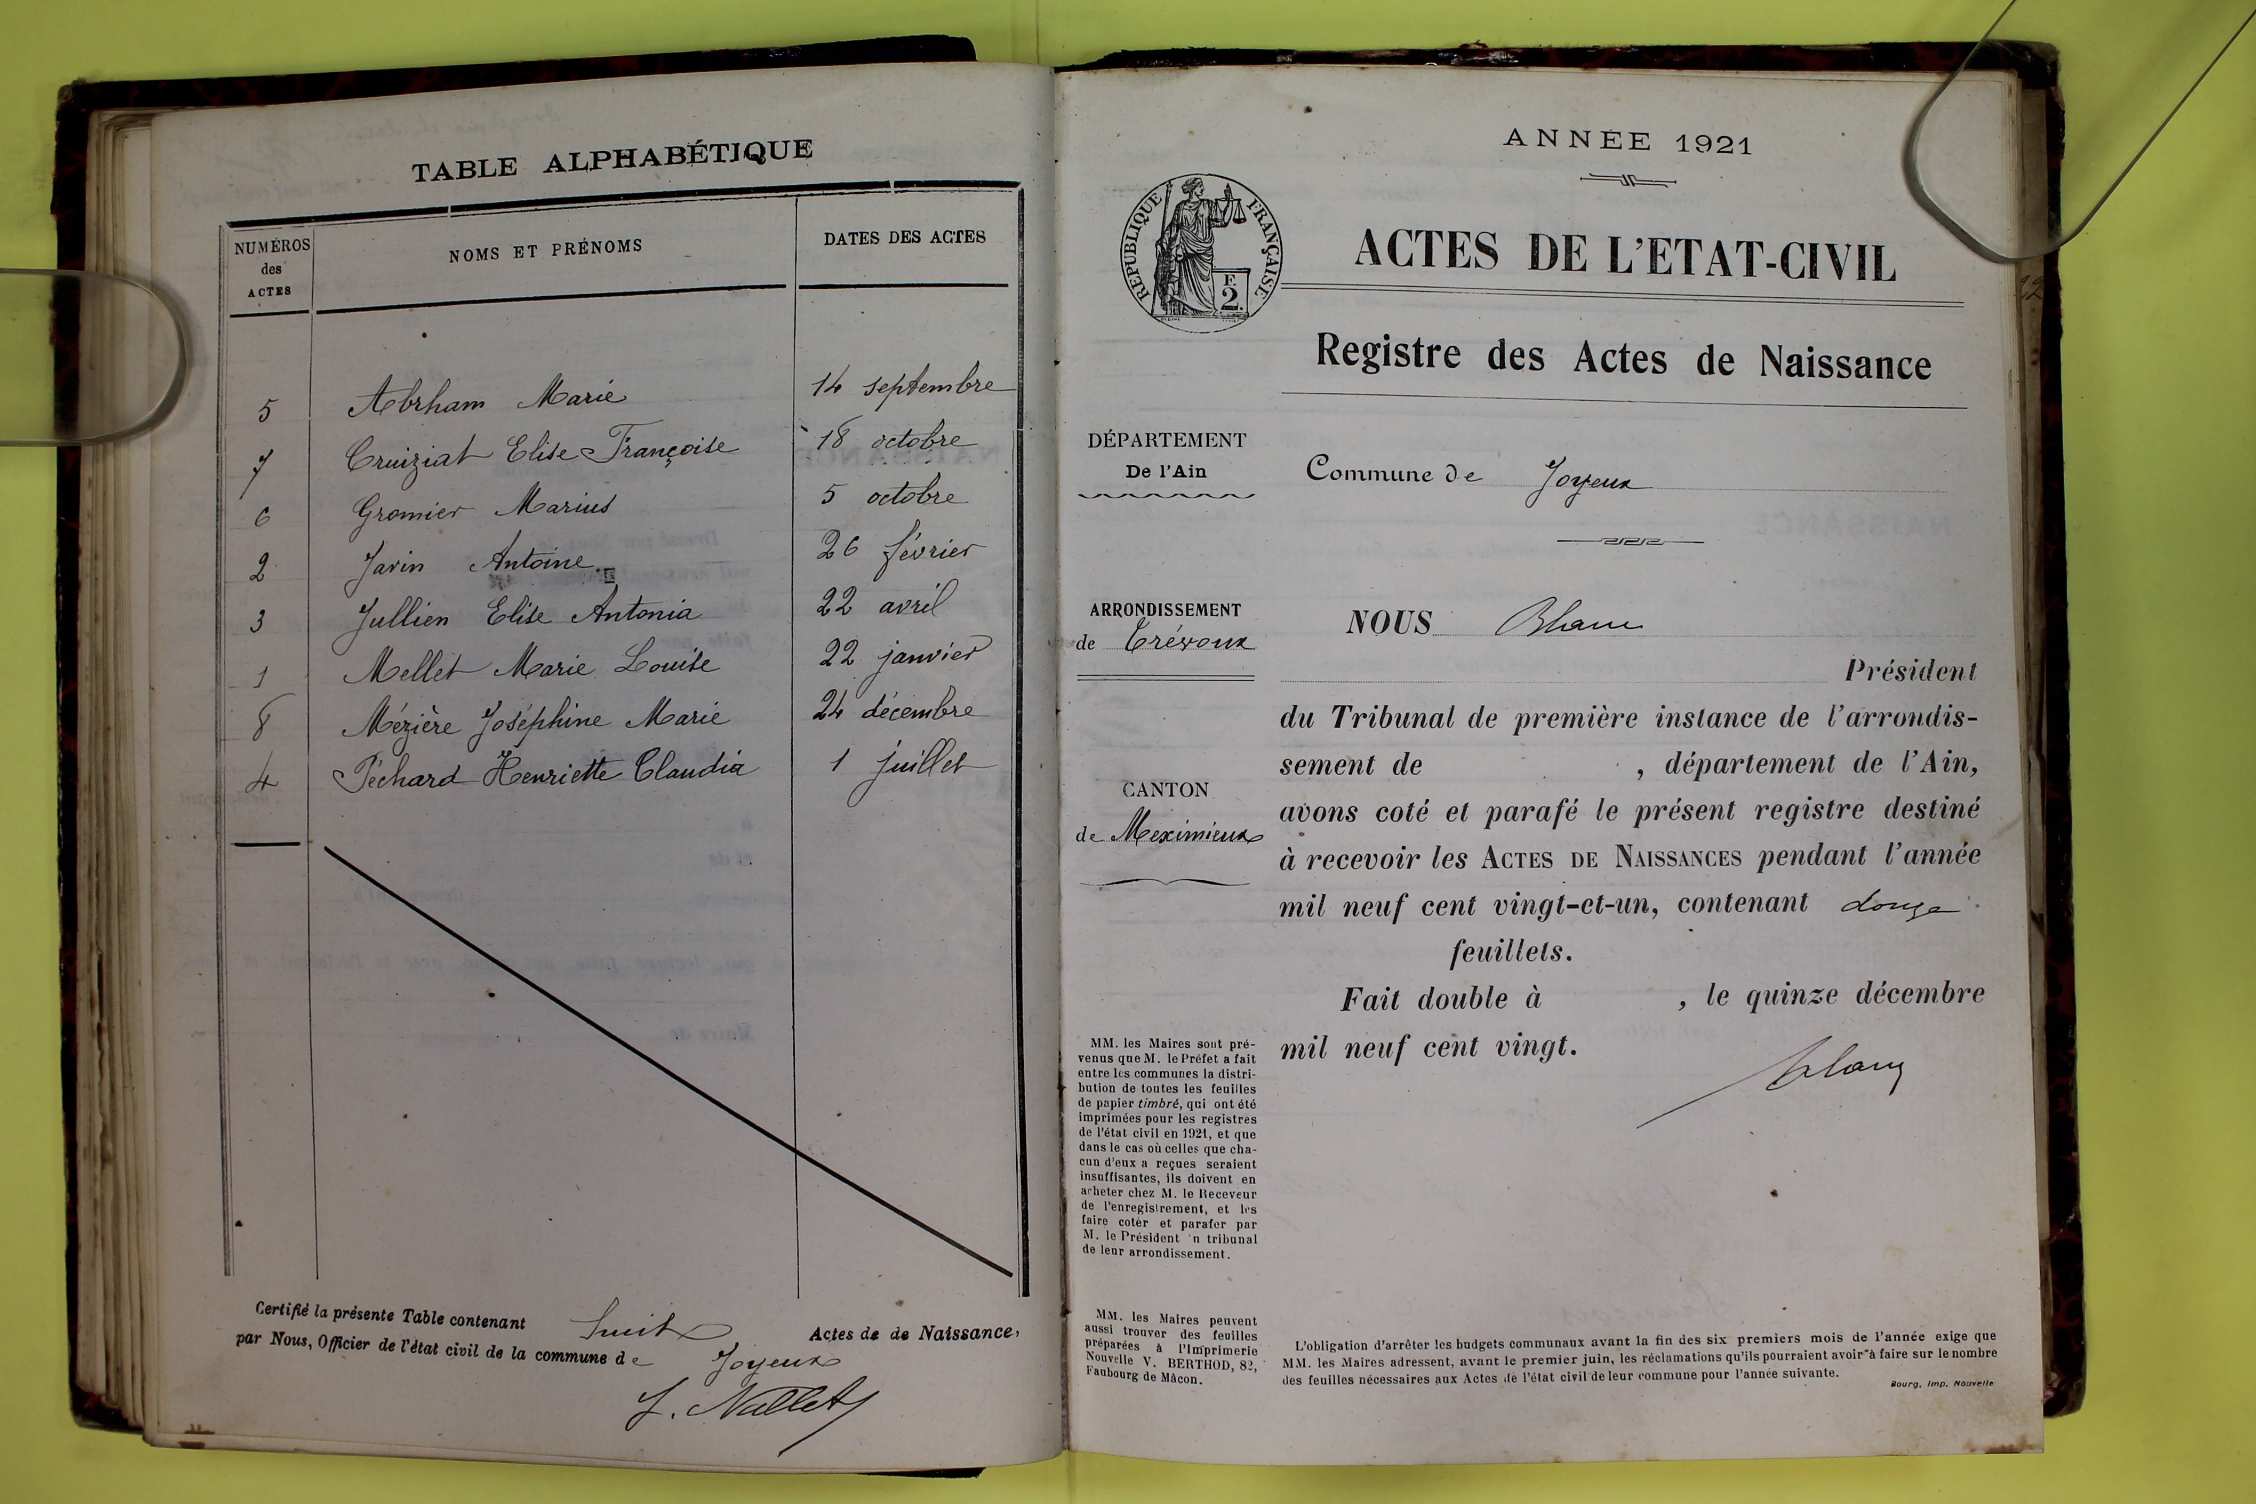 TABLE ALPHABÉTIQUE
NUMÉROS des ACTES
NOMS ET PRÉNOMS
DATES DES ACTES
5 Abrham Marie 14 septembre
7 Cruiziat Elise Françoise 18 octobre
6 Gromier Marius 5 octobre
2 Javin Antoine 26 février
3 Jullien Elise Antonia 22 avril
1 Mellet Marie Louise 22 janvier
8 Mézière Joséphine Marie 24 décembre
4 Péchard Henriette Claudia 1 juillet
Certifié la présente Table contenant huit Actes de de Naissance,
par Nous, Officier de l'état civil de la commune de Joyeux
J. Nallet
ANNÉE 1921
RÉPUBLIQUE FRANÇAISE
F.
2.
ACTES DE L'ETAT-CIVIL
Registre des Actes de Naissance
DÉPARTEMENT
De l'Ain
Commune de Joyeux
ARRONDISSEMENT
de Trévoux
NOUS Blanc
Président
du Tribunal de première instance de l'arrondis-
sement de , département de l'Ain,
CANTON
de Meximieux
avons coté et parafé le présent registre destiné
à recevoir les ACTES DE NAISSANCES pendant l'année
mil neuf cent vingt-et-un, contenant douze
feuillets.
Fait double à , le quinze décembre
mil neuf cent vingt.
Blanc
MM. les Maires sont pré-
venus que M. le Préfet a fait
entre les communes la distri-
bution de toutes les feuilles
de papier timbré, qui ont été
imprimées pour les registres
de l'état civil en 1921, et que
dans le cas où celles que cha-
cun d'eux a reçues seraient
insuffisantes, ils doivent en
acheter chez M. le Receveur
de l'enregistrement, et les
faire coter et parafer par
M. le Président 'n tribunal
de leur arrondissement.
MM. les Maires peuvent
aussi trouver des feuilles
préparées à l'Imprimerie
Nouvelle V. BERTHOD, 82,
Faubourg de Mâcon.
L'obligation d'arrêter les budgets communaux avant la fin des six premiers mois de l'année exige que
MM. les Maires adressent, avant le premier juin, les réclamations qu'ils pourraient avoir à faire sur le nombre
des feuilles nécessaires aux Actes de l'état civil de leur commune pour l'année suivante.
Bourg, Imp. Nouvelle